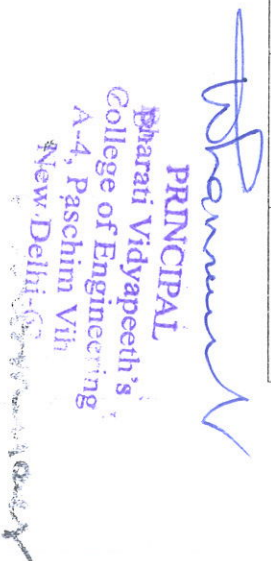 PRINCIPAL
Bharati Vidyapeeth's
College of Engineering
A-4, Paschim Vih
New Delhi-6